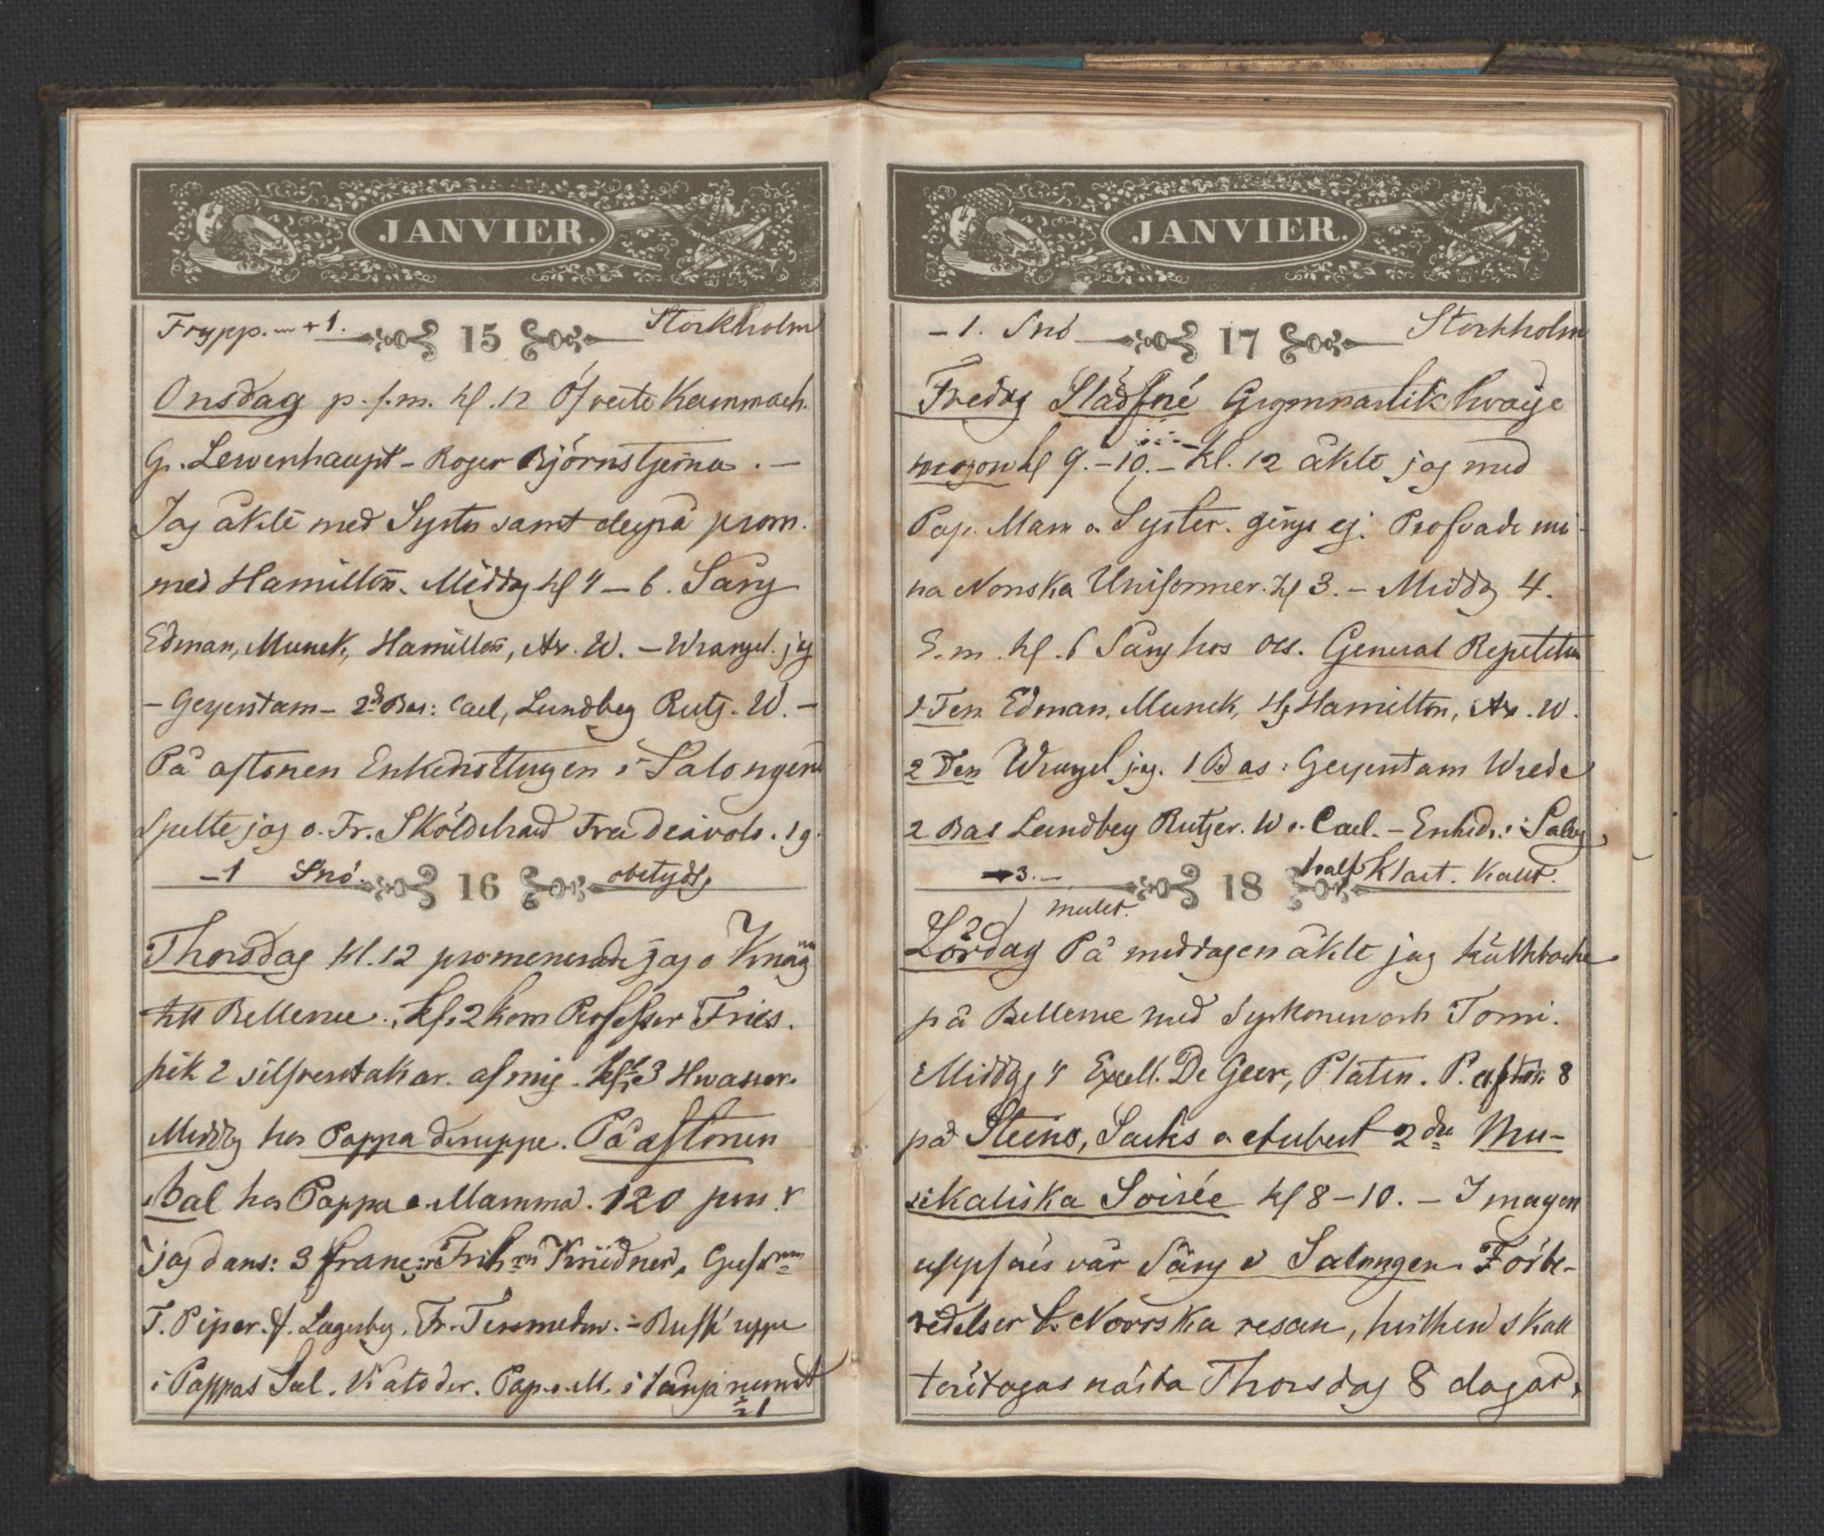 JANVIER.
+1. 15 Stockholm
Onsdag p. f. m. kl. 12 Öfverste Kammarh.
Gr. Lewenhaupt - Roger Björnstjerna. -
Jag åkte med Syster samt derpå prom.
med Hamilton. Middag kl 4 - 6. Sång
Edman, Munck, Hamilton, Ax. W. - Wrangel. jag
- Geyerstam - 2d Bas: Carl, Lundberg Rutg. W. -
På aftonen Enkedrottningen i Salongen
Spelte jag o. Fr. Sköldebrand Fra Diavolo. 1 g.
-1 Snö. 16 obetydl.
Thorsdag kl. 12 promenerade jag o
till Bellevue. kl. 2 kom Professor Fries.
fick 2 silfverstakar. af mig. kl. 3 Hwasser.
Middag hos Pappa deruppe. På aftonen
Bal hos Pappa o. Mamma. 120 pers.r
jag dans: 3 franc: Frih. Krüdner,
T. Piper. f. Lagerbg. Fr. Tersmeden. - Buffé uppe
i Pappas Sal. Vi åto der. Pap. o. M. i
21
JANVIER.
-1. Snö 17 Stockholm
Fredag Gymnastik hvarje
morgon kl 9. - 10. - Kl. 12 åkte jag med
Pap. Mam o Syster. gingo ej. Profvade mi-
na Norska Uniformer. kl 3. - Middag 4.
E. m. kl. 6 Sång hos oss. General Repetition
1 Ten Edman, Munck, Hg Hamilton, Ax. W.
2 Ten Wrangel jag. 1 Bas: Geyerstam Wrede
2 Bas Lundberg Rutger. W o. Carl. - Enked. i Salong
3. - 18 half Klart. Kallt.
mulet.
Lördag På middagen åkte jag kälkbacke
på Bellevue med Syskonen och Tomi.
Middag 4 Excell. De Geer, Platen. P. afton. 8
på Steins, Sacks o dubert 2dra Mu-
sikaliska Soirée kl 8 - 10. - I morgon
uppföres vår Sång i Salongen. Förbe-
redelser t. Norrska resan, hvilken skall
företagas nästa Thorsdag 8 dagar.